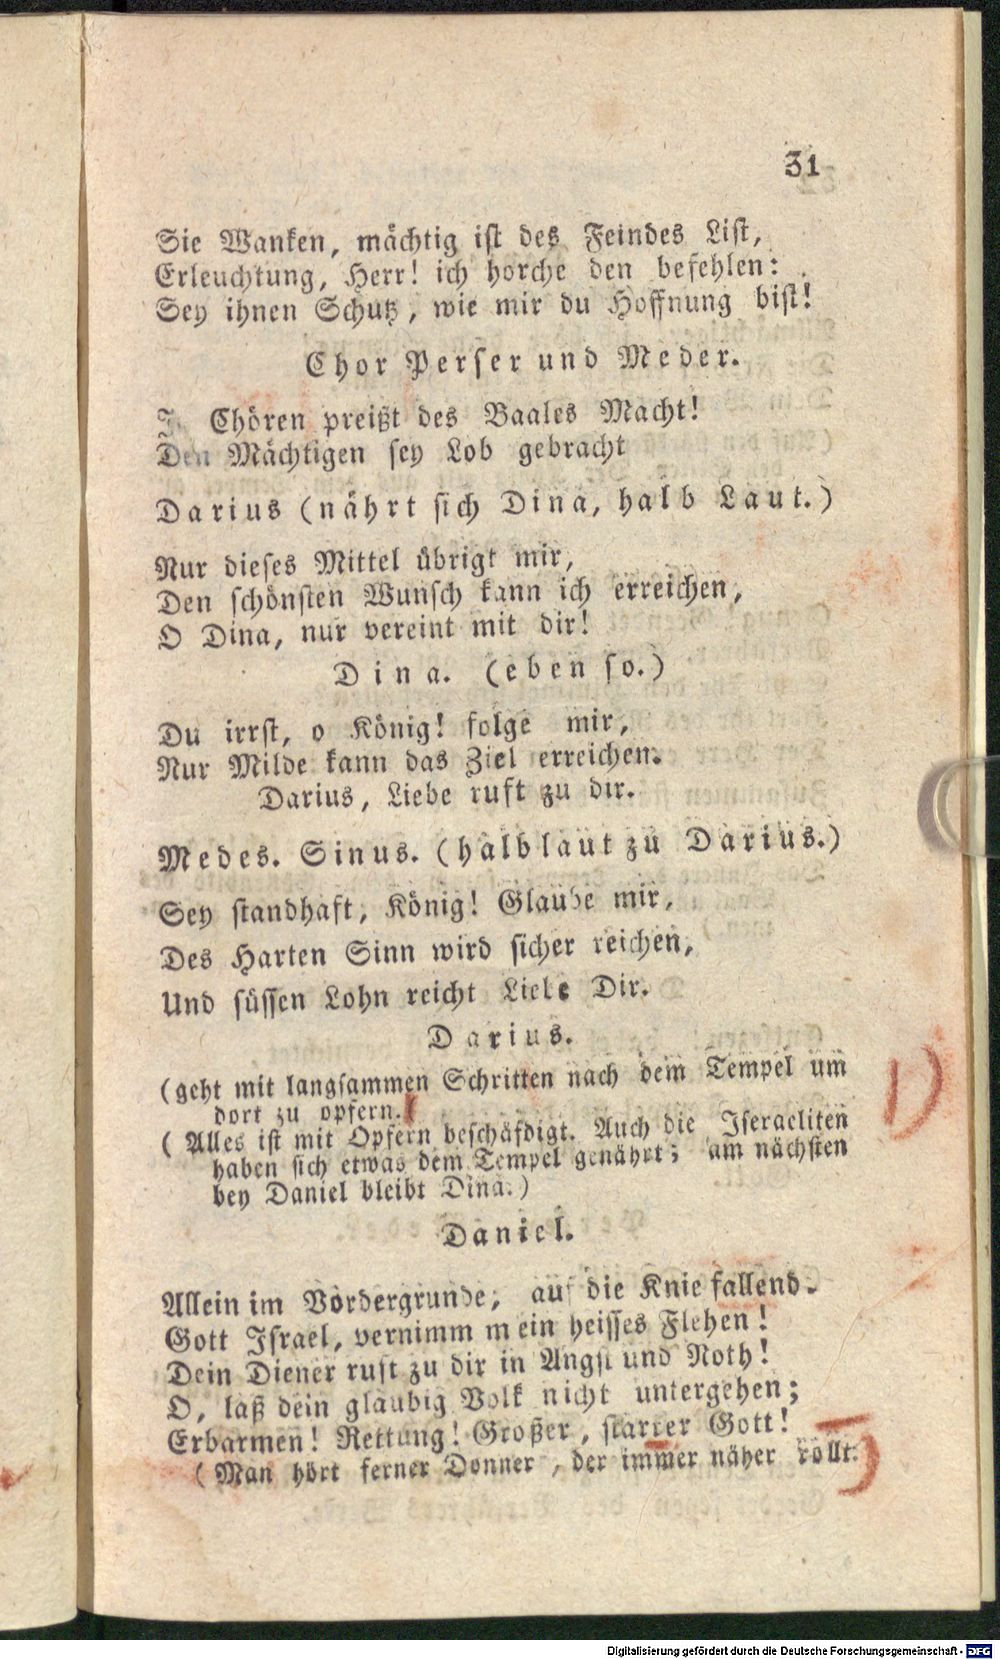 31
Sie Wanken, mächtig ist des Feindes List,
Erleuchtung, Herr! ich horche den befehlen:
Sey ihnen Schutz, wie mir du Hoffnung bist!
Chor Perser und Meder.
In Chören preißt des Baales Macht!
Den Mächtigen sey Lob gebracht
Darius (nährt sich Dina, halb Laut.)
Nur dieses Mittel übrigt mir,
Den schönsten Wunsch kann ich erreichen,
O Dina, nur vereint mit dir!
Dina. (eben so.)
Du irrst, o König! folge mir,
Nur Milde kann das Ziel erreichen.
Darius, Liebe ruft zu dir.
Medes. Sinus. (halblaut zu Darius.)
Sey standhaft, König! Glaube mir,
Des Harten Sinn wird sicher reichen,
Und süssen Lohn reicht Liebe Dir.
Darius.
(geht mit langsammen Schritten nach dem Tempel um
dort zu opfern.
(Alles ist mit Opfern beschäfdigt. Auch die Iseraeliten
haben sich etwas dem Tempel genährt; am nächsten
bey Daniel bleibt Dina.)
Daniel.
Allein im Vordergrunde, auf die Knie fallend.
Gott Israel, vernimm mein heisses Flehen!
Dein Diener ruft zu dir in Angst und Noth!
O, laß dein glaubig Volk nicht untergehen;
Erbarmen! Rettung! Großer, starrer Gott!
(Man hört ferner Donner, der immer näher rollt.
Digitalisierung gefördert durch die Deutsche Forschungsgemeinschaft - DFG